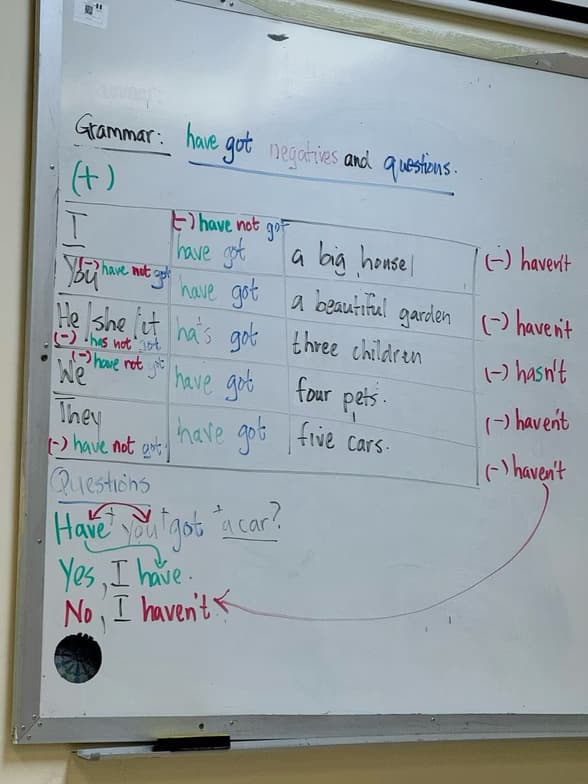 Grammar: have got negatives and questions.
(+)
I (-) have not got have got a big house (-) haven't
You (-) have not got have got a beautiful garden (-) haven't
He/she/it (-) has not got has got three children (-) hasn't
We (-) have not got have got four pets. (-) haven't
They (-) have not got have got five cars. (-) haven't
Questions
Have + you + got + a car?
Yes, I have.
No, I haven't